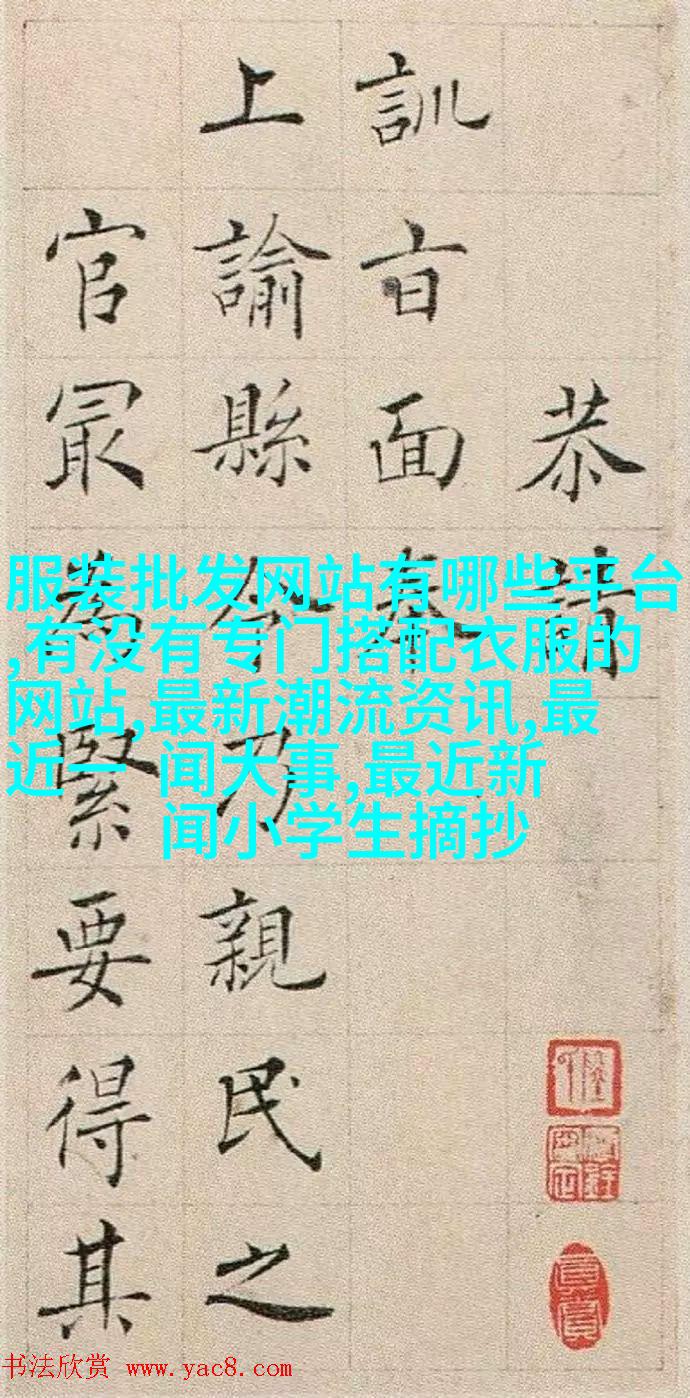 恭請
訓旨面奉
上諭縣令乃親民之
官冣為緊要得其
服装批发网站有哪些平台
,有没有专门搭配衣服的
网站,最新潮流资讯,最
近 闻大事,最近新
闻小学生摘抄
书法欣赏 www.yac8.com